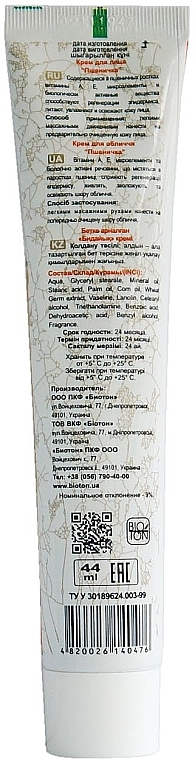 дата изготовления
дата виготовлення
шығарылған күні
Крем для лица
"Пшеничка"
RU Содержащиеся в пшеничных ростках
витамины А, Е, микроэлементы и
биологически активные вещества
способствуют регенерации эпидермиса,
питают, увлажняют и оздоравливают кожу.
Способ применения: легкими
массажными движениями нанести на
предварительно очищенную кожу
Крем для обличчя
"Пшеничка"
UA Вітаміни А, Е, мікроелементи та
біологічно активні речовини, що містяться в
паростках пшениці, сприяють регенерації
епідермісу, живлять, зволожують та
оздоровлюють шкіру обличчя.
Спосіб застосування:
легкими масажними рухами нанести на
попередньо очищену шкіру обличчя.
Бетке арналған
"Бидайық" кремі
KZ Қолдану тәсілі: алдын – ала
тазартылған бет терісіне жеңіл уқалау
қимылдарымен жағыңыз.
Состав/Склад/Құрамы/(INCI):
Aqua, Glyceryl stearate, Mineral oil,
Stearic acid, Palm oil, Corn oil, Wheat
Germ extract, Vaseline, Lanolin, Cetearyl
alcohol, Triethanolamine, Benzoic acid,
Dehydroacetic acid, Benzyl alcohol,
Fragrance.
Срок годности: 24 месяца
Термін придатності: 24 місяці
Сақталу мерзімі: 24 ай
Хранить при температуре
от +5° С до +25° С
Зберігати при температурі
від +5° С до +25° С
Производитель:
ООО ПКФ «Биотон»
ул.Войцеховича, 77, г.Днепропетровск,
49101, Украина
ТОВ ВКФ «Біотон»
вул.Войцеховича, 77, м.Дніпропетровськ,
49101, Україна
«Биотон» ПКФ ООО
Войцехович к., 77,
Днепропетровск қ.,
49101, Украина
Тел.: +38 (056) 790-40-00
www.bioton.ua
Номинальное отклонение - 9%
BIO
TON
44
ml
EAC
ТУ У 30189624.003-99
4820026140476